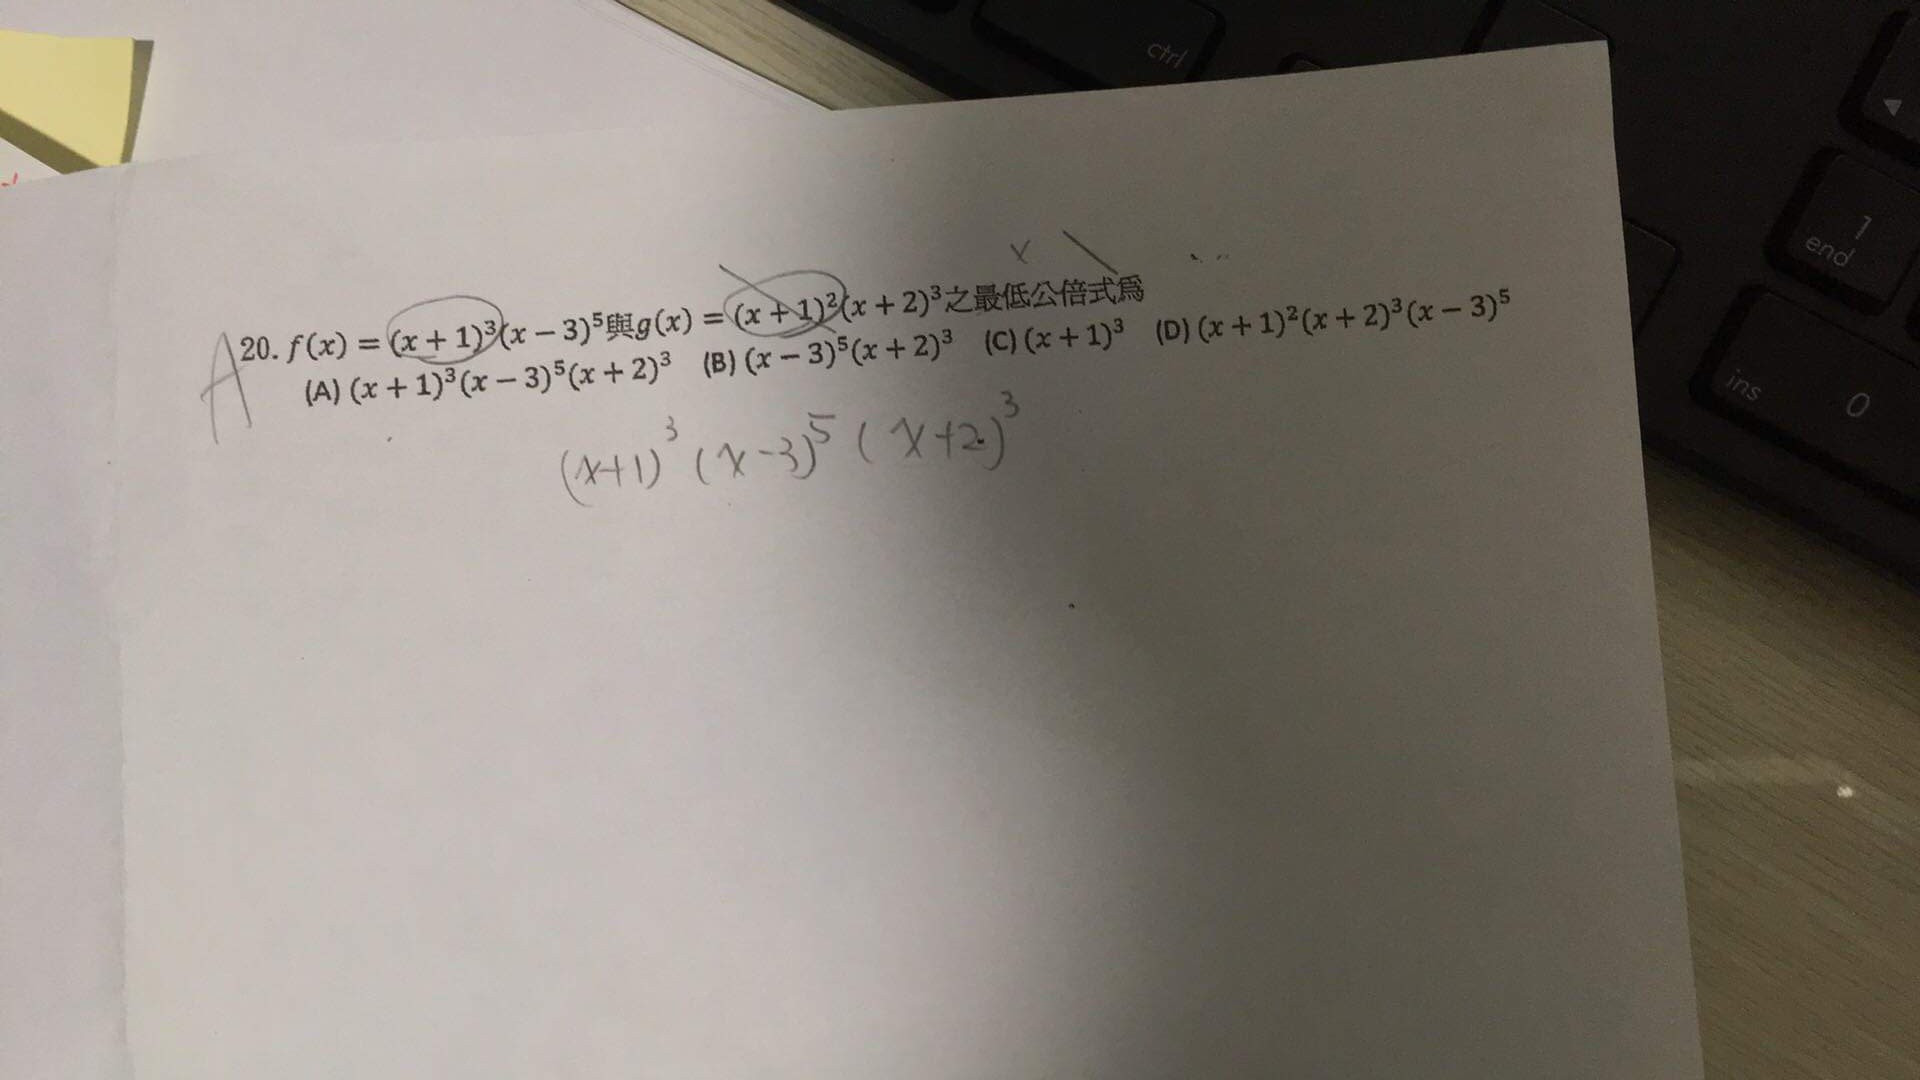 ctrl
1
end
ins 0
A
20. f(x) = (x + 1)³(x − 3)⁵與g(x) = (x + 1)²(x + 2)³之最低公倍式為
(A) (x + 1)³(x − 3)⁵(x + 2)³ (B) (x − 3)⁵(x + 2)³ (C) (x + 1)³ (D) (x + 1)²(x + 2)³(x − 3)⁵
(x+1)³ (x-3)⁵ (x+2)³